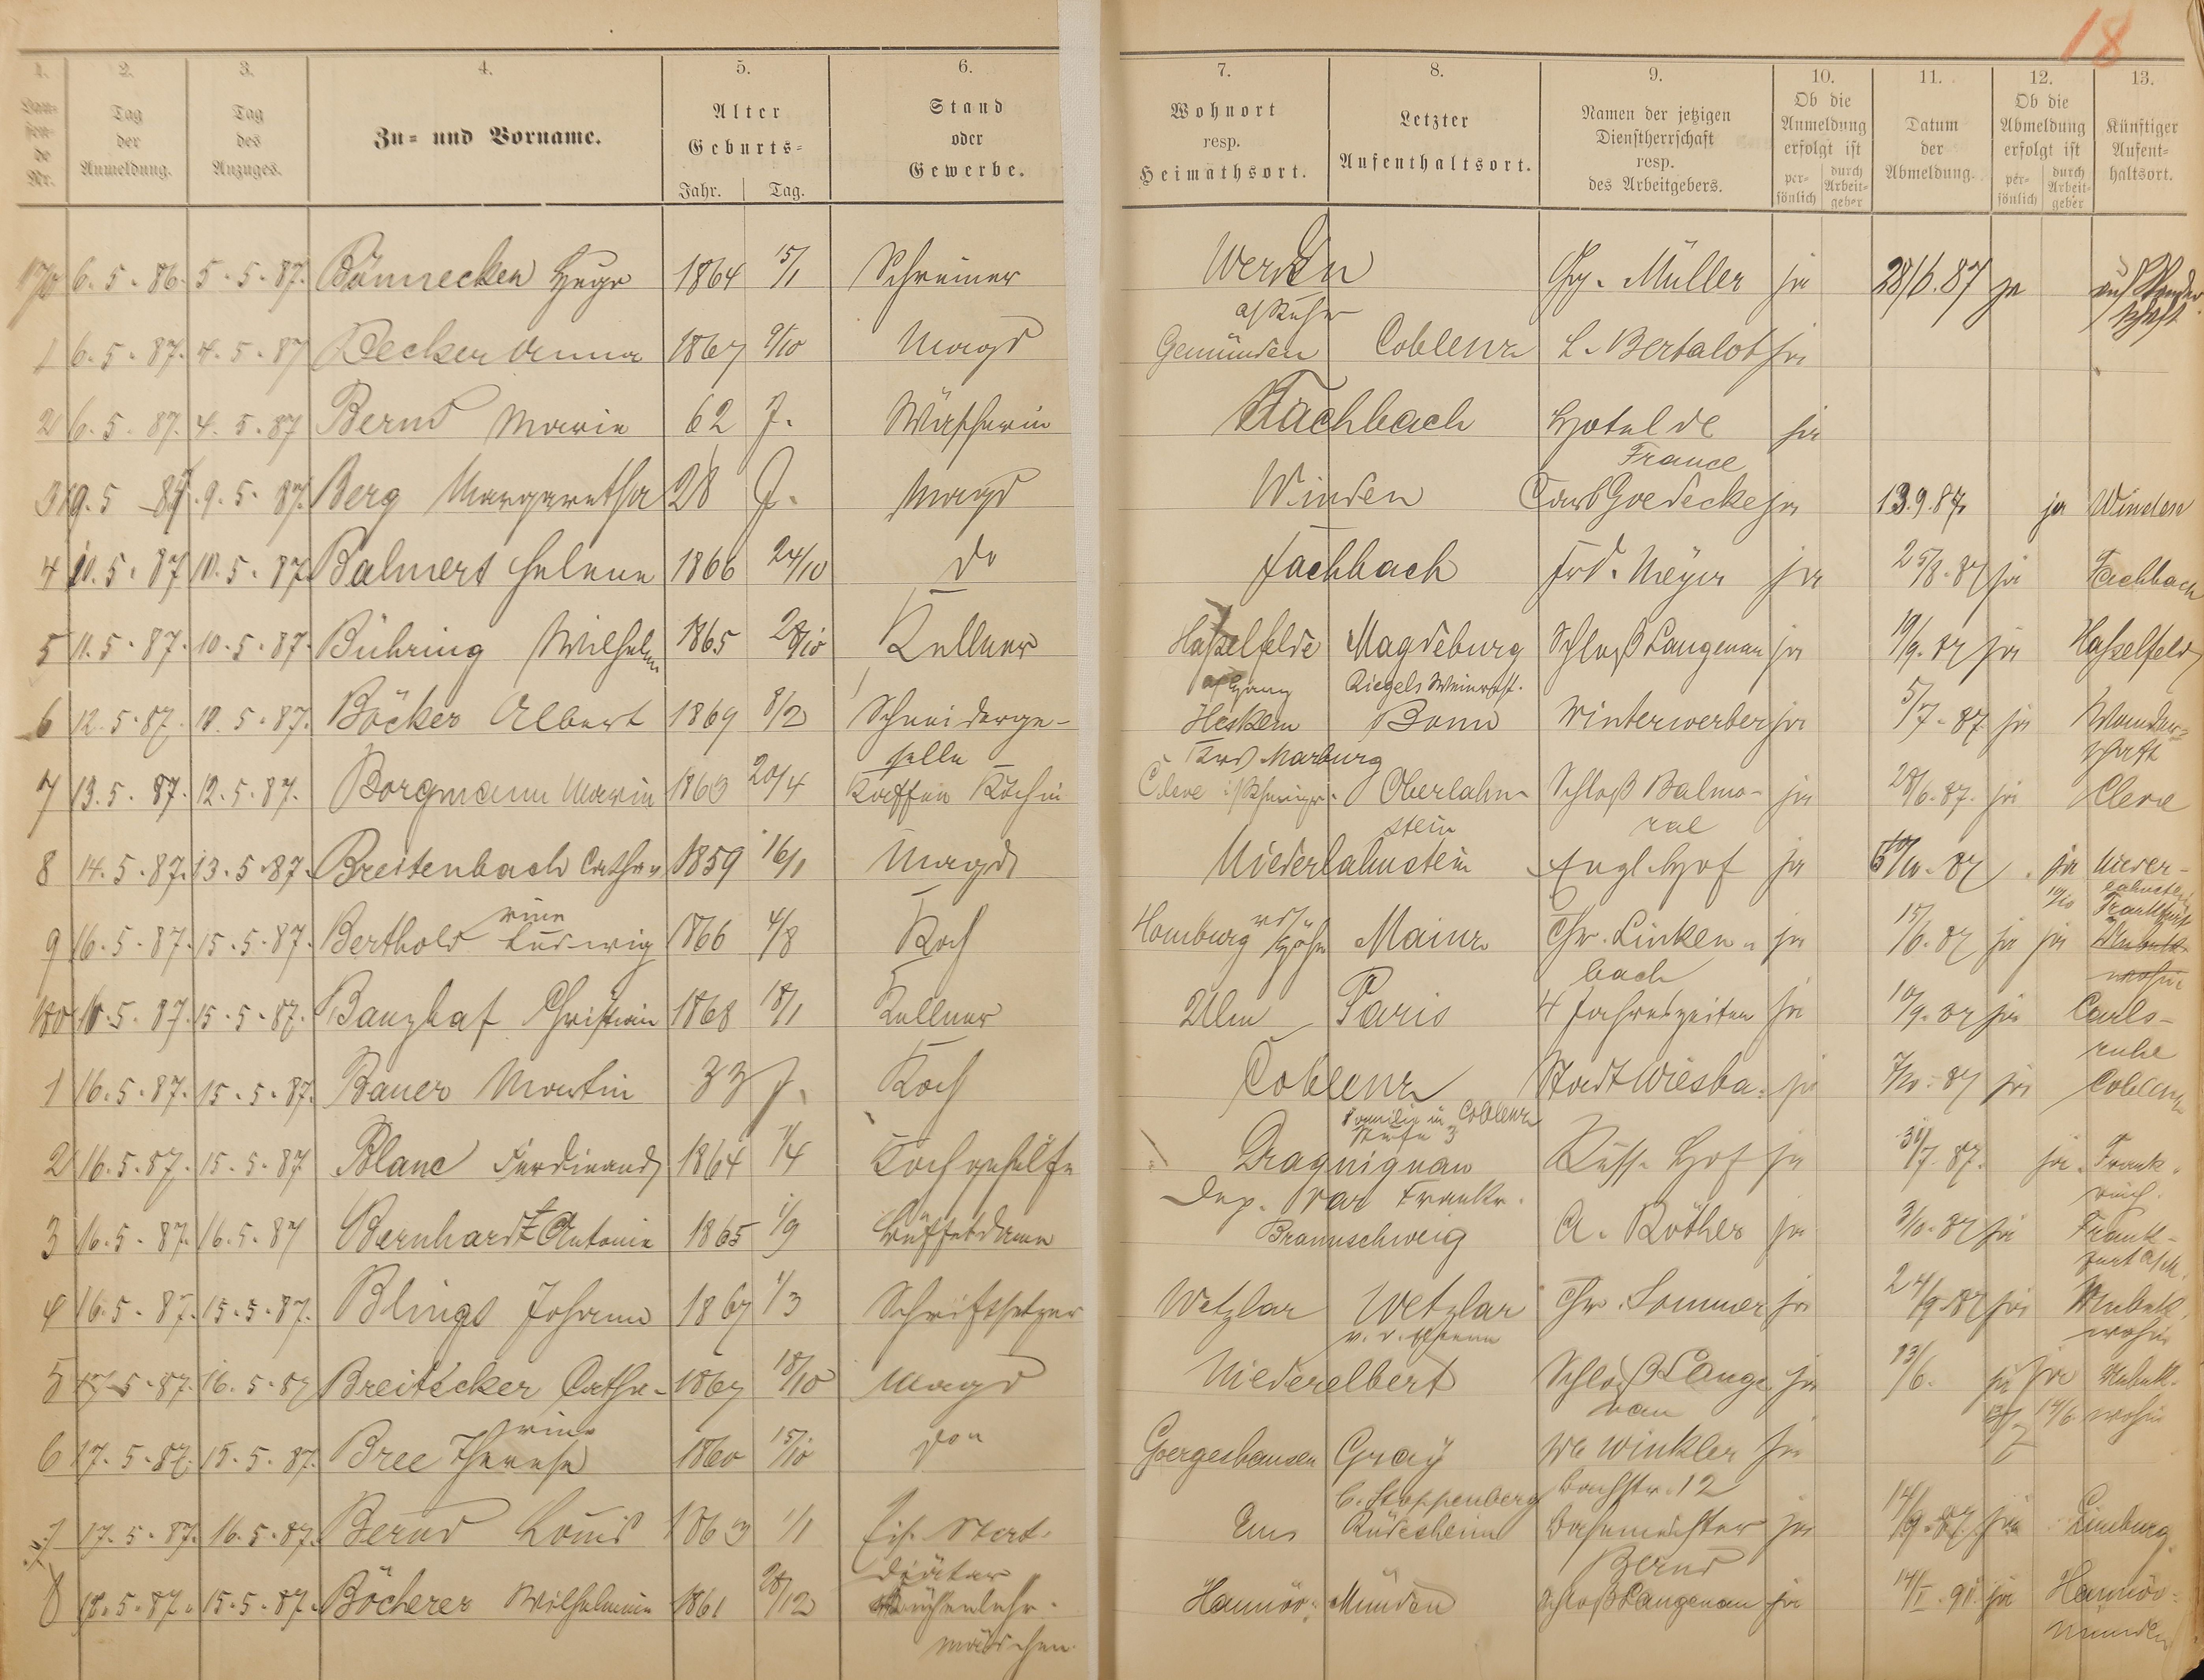 18
1. 2. 3. 4. 5. 6. 7. 8. 9. 10. 11. 12. 13.
Lau-
fen-
de
Nr.
Tag
der
Anmeldung.
Tag
des
Anzuges.
Zu= und Vorname.
Alter
Geburts=
Jahr. Tag.
Stand
oder
Gewerbe.
Wohnort
resp.
Heimathsort.
Letzter
Aufenthaltsort.
Namen der jetzigen
Dienstherrschaft
resp.
des Arbeitgebers.
Ob die
Anmeldung
erfolgt ist
per-
sönlich
durch
Arbeit-
geber
Datum
der
Abmeldung.
Ob die
Abmeldung
erfolgt ist
per-
sönlich
durch
Arbeit-
geber
Künftiger
Aufent-
haltsort.
170 6.5.86. 5.5.87. Bönnecken Hugo 1864 15/1 Schreiner Werden Chr. Müller ja 28/6.87 ja auf Wander
a/Ruhr schaft
1 6.5.87. 4.5.87 Becker Anna 1867 9/10 Magd Gemünden Coblenz L. Bertalot ja
2 6.5.87. 4.5.87 Bernd Marie 62 J. Wäscherin Fachbach Hotel de ja
France
3 9.5 87. 9.5.87. Berg Margaretha 28 J. Magd Winden Carl Goedecke ja 13.9.87. ja Winden
4 10.5.87 10.5.87. Balmert Helene 1866 24/10 do Fachbach Frd. Meyer ja 25/8.87 ja Fachbach
5 11.5.87. 10.5.87. Bühring Wilhelm 1865 28/10 Kellner Hasselfelde Magdeburg Schloß Langenau ja 19/9.87 ja Hasselfeld
Riegels Weinrest.
6 12.5.87. 10.5.87. Böcker Albert 1869 8/2 Schneiderge- Heskem Bonn Winterwerber ja 5/7.87 ja Wander-
selle Krs Marburg schaft
7 13.5.87. 12.5.87. Borgmann Marie 1863 20/4 Kaffee Köchin Cleve Oberlahn- Schloß Balmo- ja 28/6.87. ja Cleve
stein ral
8 14.5.87. 13.5.87. Breitenbach Catha- 1859 16/1 Magd Niederlahnstein Engl. Hof ja 87 ja Nieder-
rine lahnstein
9 16.5.87. 15.5.87. Berthold Ludwig 1866 4/8 Koch Homburg v d Höhe Mainz Chr. Linken- ja 15/6.87 ja ja 10/10 Frankfurt
bach
180 16.5.87. 15.5.87. Banzhaf Christian 1868 18/1 Kellner Ulm Paris 4 Jahreszeiten ja 10/9.87 ja Carls-
ruhe
1 16.5.87. 15.5.87. Bauer Martin 33 J. Koch Coblenz Stadt Wiesba- ja 7/10.87 ja Coblenz
Familie in Coblenz
2 16.5.87. 15.5.87 Blanc Ferdinand 1864 1/4 Kochgehülfe Draguignan Russ. Hof ja 31/7.87. ja Frank-
Dep. Var Frankr. reich.
3 16.5.87. 16.5.87 Bernhardt Antonie 1865 1/9 Büffetdame Braunschweig A. Röther ja 3/10.87 ja Frank-
furt a/M.
4 16.5.87. 15.5.87. Blings Johann 1867 1/3 Schriftsetzer Wetzlar Wetzlar Chr. Sommer ja 24/9.87 ja Unbek.
wohin
5 17.5.87. 16.5.87 Breitecker Catha- 1867 18/10 Magd Niederelbert Schloß Lange ja 13/6. ja ja Unbek.
rine nau 14/6 wohin
6 17.5.87. 15.5.87. Bree Therese 1860 15/10 Goergeshausen Gray We Winkler ja
C. Stoppenberg Bachstr. 12
7 17.5.87. 16.5.87. Bernd Louis 1863 1/1 Ems Rüdesheim Bahnmeister ja 14/9.87 ja Limburg
Diätar Bernd
8 18.5.87. 15.5.87. Böcherer Wilhelmine 1861 28/12 Küchenlehr- Hannöv. Münden Schloß Langenau ja ja Hannöv.
mädchen Münden